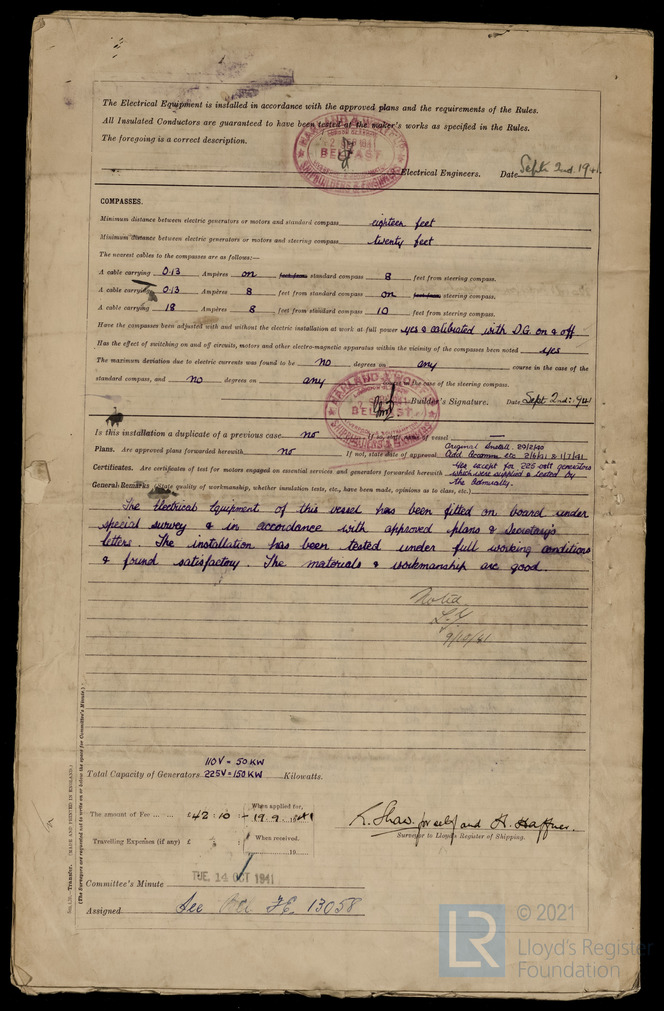 The Electrical Equipment is installed in accordance with the approved plans and the requirements of the Rules.
All Insulated Conductors are guaranteed to have been tested at the maker's works as specified in the Rules.
The foregoing is a correct description.
HARLAND & WOLFF
BELFAST
SHIPBUILDERS & ENGINEERS
Electrical Engineers. Date Sept 2nd. 1941.
COMPASSES.
Minimum distance between electric generators or motors and standard compass eighteen feet
Minimum distance between electric generators or motors and steering compass twenty feet
The nearest cables to the compasses are as follows:—
A cable carrying 0.13 Ampères on feet from standard compass 8 feet from steering compass.
A cable carrying 0.13 Ampères 8 feet from standard compass on feet from steering compass.
A cable carrying 18 Ampères 8 feet from standard compass 10 feet from steering compass.
Have the compasses been adjusted with and without the electric installation at work at full power yes & calibrated with D.G. on & off
Has the effect of switching on and off circuits, motors and other electro-magnetic apparatus within the vicinity of the compasses been noted yes
The maximum deviation due to electric currents was found to be no degrees on any course in the case of the
standard compass, and no degrees on any course in the case of the steering compass.
HARLAND & WOLFF
BELFAST
SHIPBUILDERS & ENGINEERS
Builder's Signature. Date Sept 2nd: 1941
Is this installation a duplicate of a previous case no If so, state name of vessel —
Plans. Are approved plans forwarded herewith no If not, state date of approval Original Install. 29/2/40
Add Accomm etc 2/6/41 & 1/7/41
Certificates. Are certificates of test for motors engaged on essential services and generators forwarded herewith Yes except for 225 volt generators
which were supplied & tested by
the Admiralty.
General Remarks (State quality of workmanship, whether insulation tests, etc., have been made, opinions as to class, etc.)
The Electrical Equipment of this vessel has been fitted on board under
special survey & in accordance with approved plans & Secretary's
letters. The installation has been tested under full working conditions
& found satisfactory. The materials & workmanship are good.
Noted
9/10/41
110V = 50 KW
Total Capacity of Generators 225V = 150 KW Kilowatts.
The amount of Fee ... ... £42 : 10 : - When applied for, 19.9.1941
Travelling Expenses (if any) £ : : When received, 19
K. Shaw for self and H. Haffner.
Surveyor to Lloyd's Register of Shipping.
Committee's Minute TUE. 14 OCT 1941
Assigned See Bel F.E. 13058
No. 1.26.—Transfer. (MADE AND PRINTED IN ENGLAND.)
(The Surveyors are requested not to write on or below the space for Committee's Minute.)
LR
© 2021
Lloyd's Register
Foundation